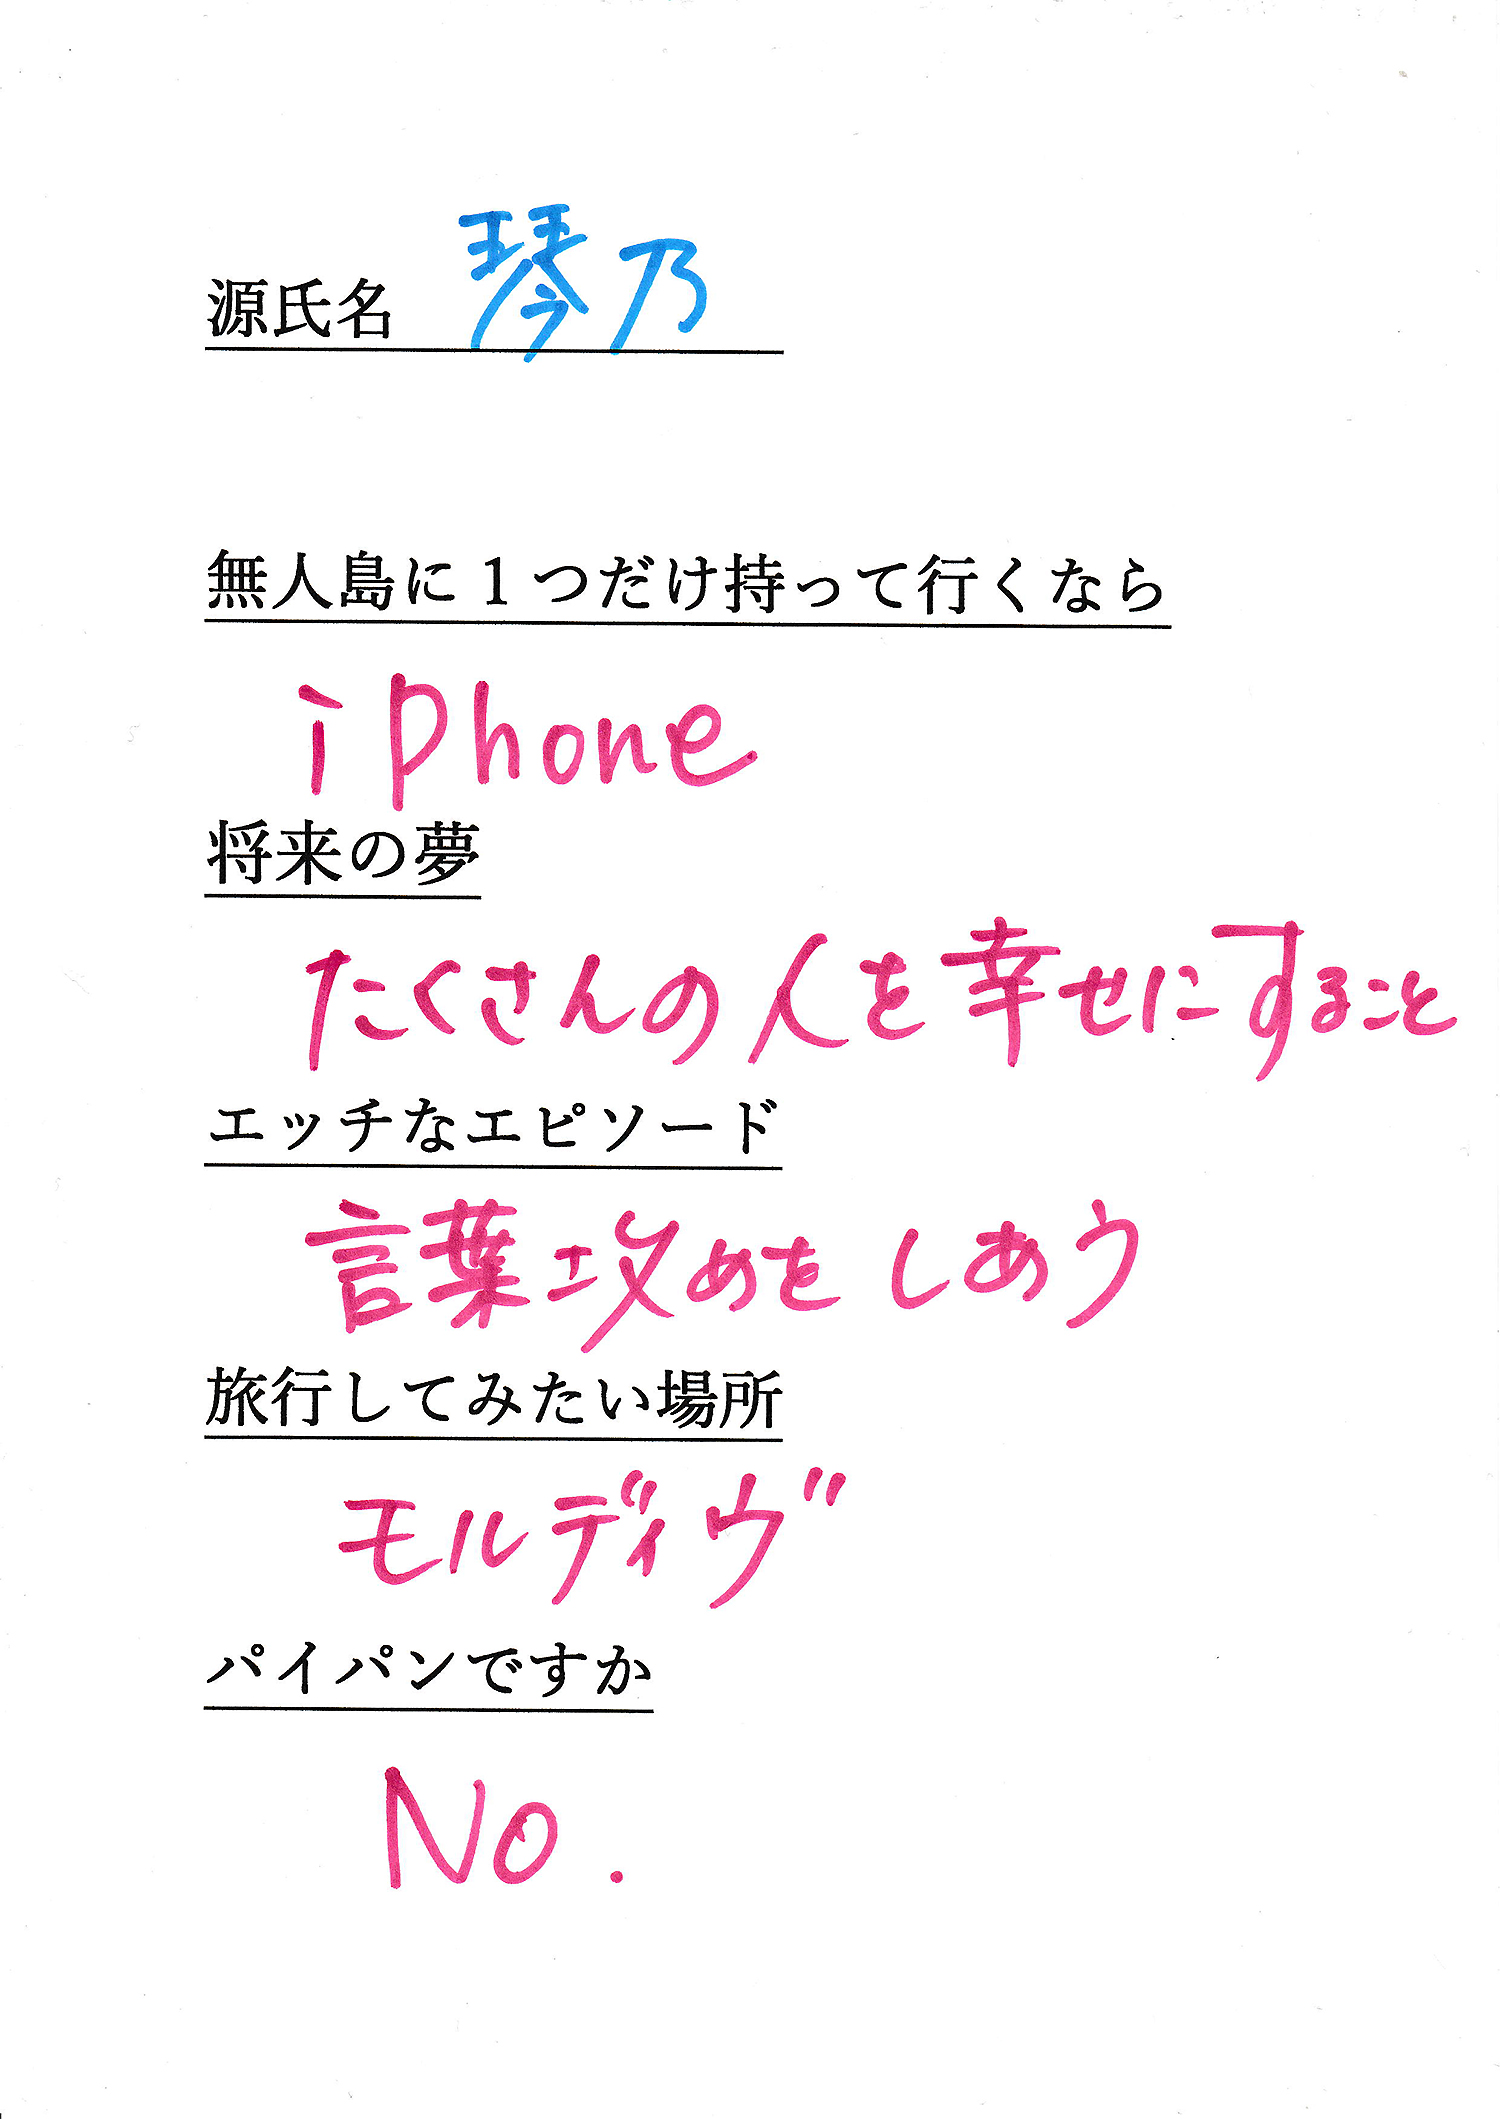 源氏名 琴乃
無人島に1つだけ持って行くなら
iPhone
将来の夢
たくさんの人を幸せにすること
エッチなエピソード
言葉攻めをしあう
旅行してみたい場所
モルディヴ
パイパンですか
No.